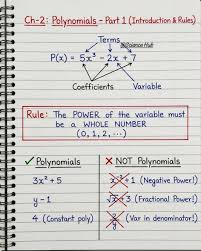 Ch-2: Polynomials - Part 1 (Introduction & Rules)
Terms
P(x) = 5x³ - 2x + 7
Coefficients Variable
Rule: The POWER of the variable must
be a WHOLE NUMBER
(0, 1, 2, ...)
✓ Polynomials
✗ NOT Polynomials
3x² + 5
y - 1
4 (Constant poly)
+ 1 (Negative Power!)
√x + 3 (Fractional Power!)
2/y (Var in denominator!)